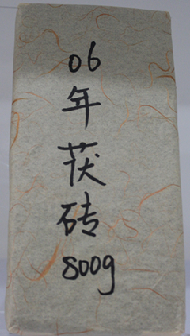 06
年
茯
砖
800g